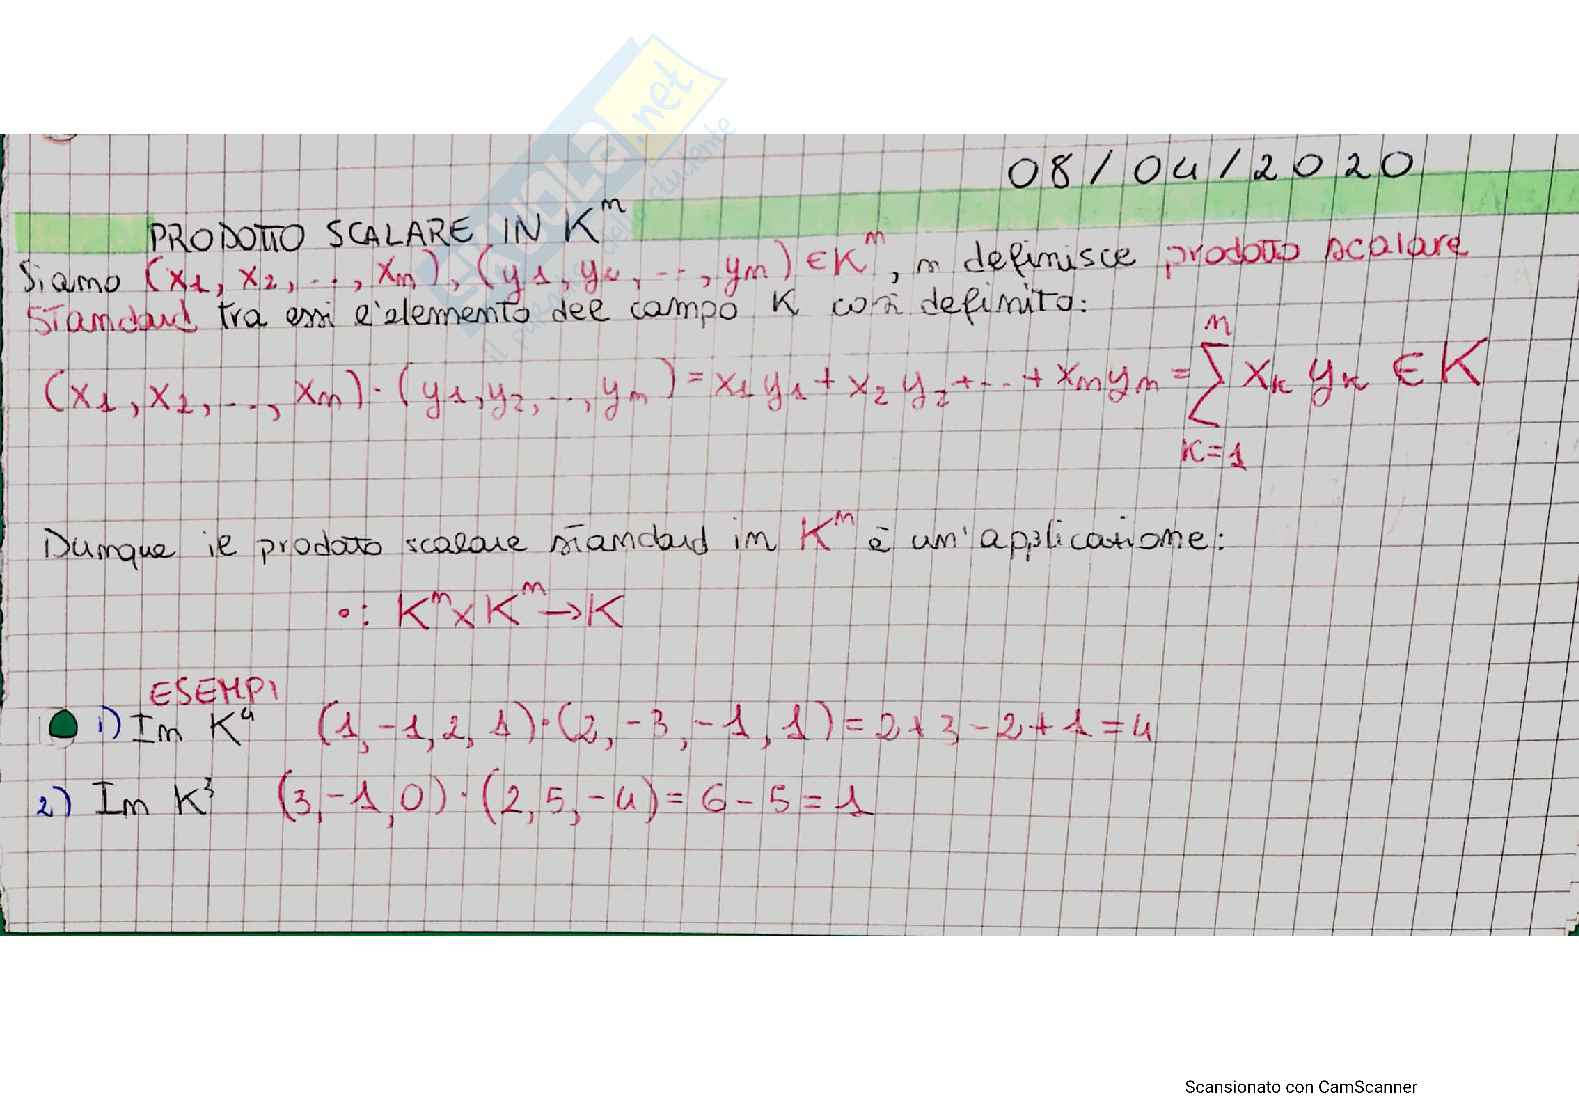 08/04/2020
PRODOTTO SCALARE IN Kⁿ
Siano (x₁, x₂, .., xₙ), (y₁, y₂, .., yₙ) ∈ Kⁿ, si definisce prodotto scalare
standard tra essi l'elemento del campo K così definito:
(x₁, x₂, .., xₙ) · (y₁, y₂, .., yₙ) = x₁y₁ + x₂y₂ + .. + xₙyₙ = ∑ₖ₌₁ⁿ xₖ yₖ ∈ K
Dunque il prodotto scalare standard in Kⁿ è un'applicazione:
∘: Kⁿ × Kⁿ → K
ESEMPI
1) In K⁴ (1, -1, 2, 1) · (2, -3, -1, 1) = 2 + 3 - 2 + 1 = 4
2) In K³ (3, -1, 0) · (2, 5, -4) = 6 - 5 = 1
Scansionato con CamScanner